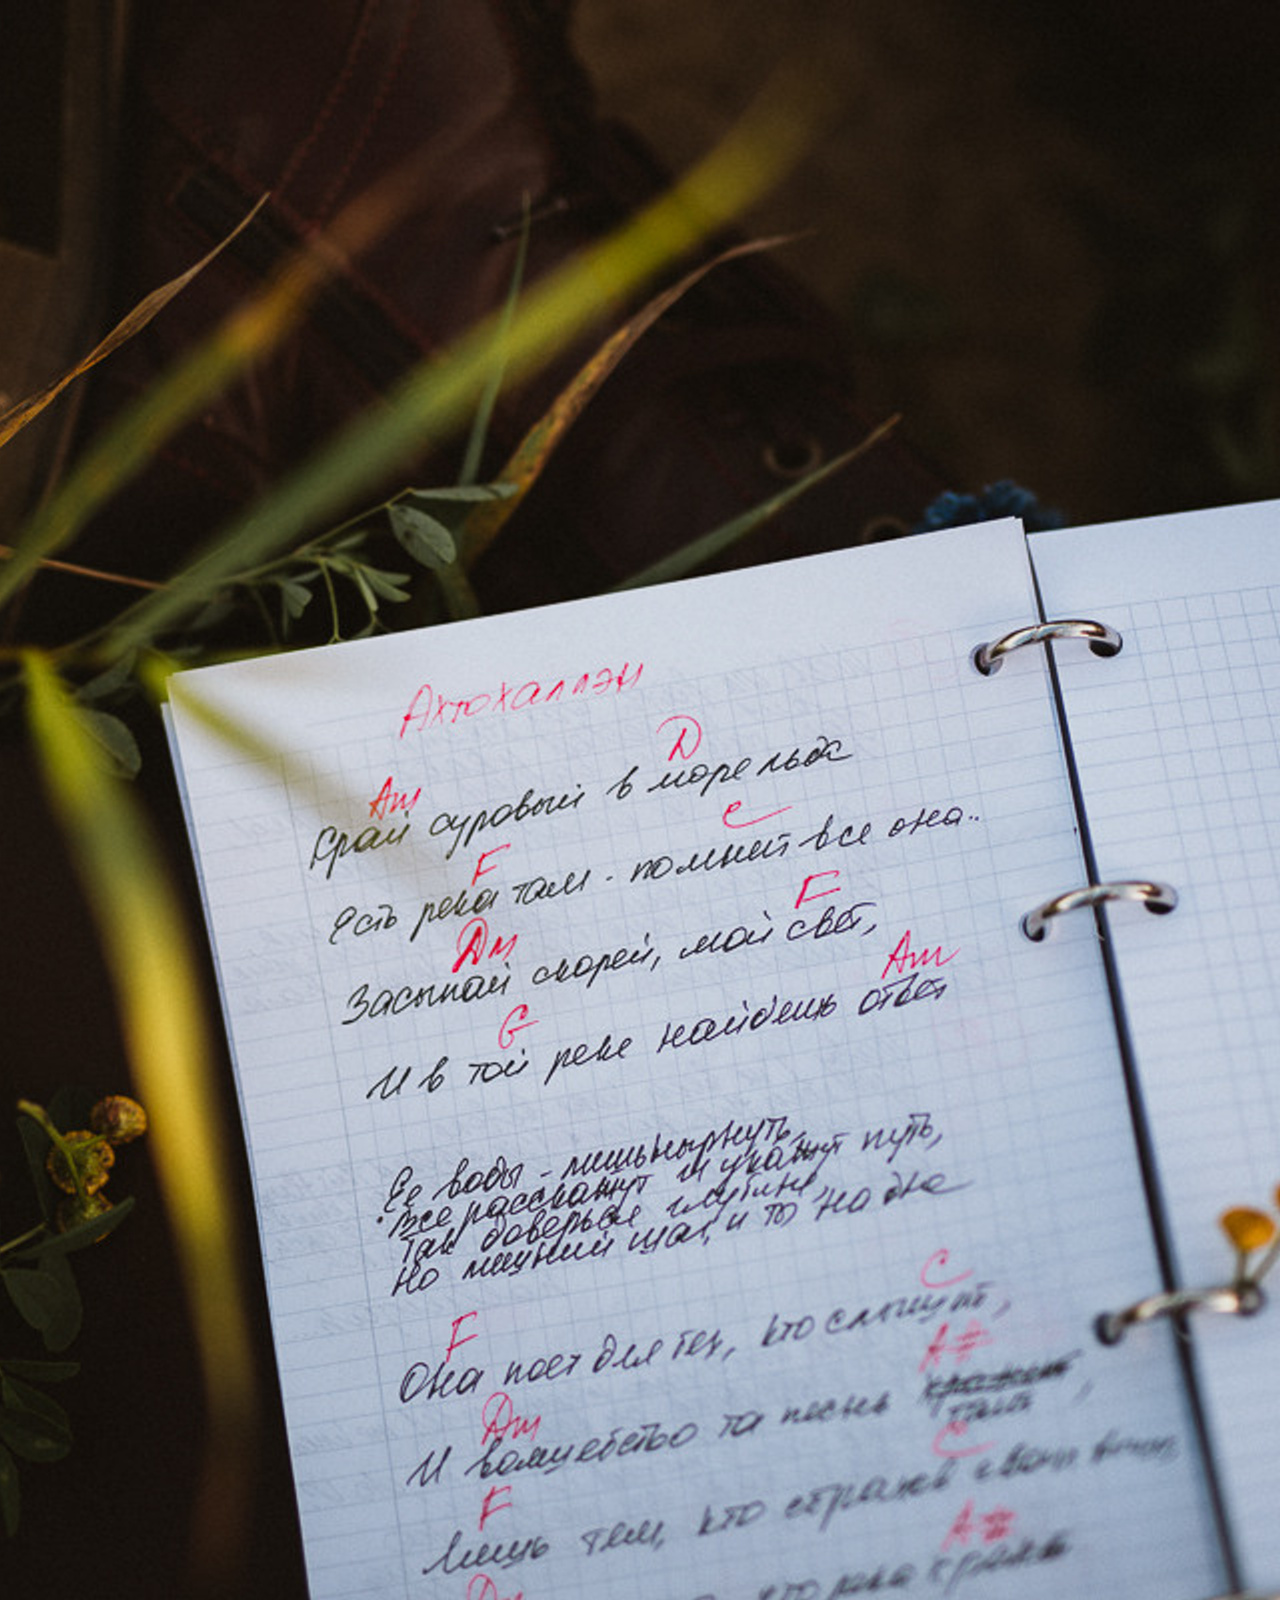 Ахтохаллэн
D
Am
Край суровый в море льда
C
F
Есть река там - помнит все она..
F
Dm
Засыпай скорей, мой свет,
Am
G
И в той реке найдешь ответ
Ее воды - лишь нырнуть,
Все расскажут и укажут путь,
Так доверься глубине,
Но лишний шаг, и ты на дне
C
F
Она поет для тех, кто слышит,
A#
Dm
И волшебство та песнь хранит
таит
C
F
Лишь тем, кто страхи свои
A#
Dm
что река хранит